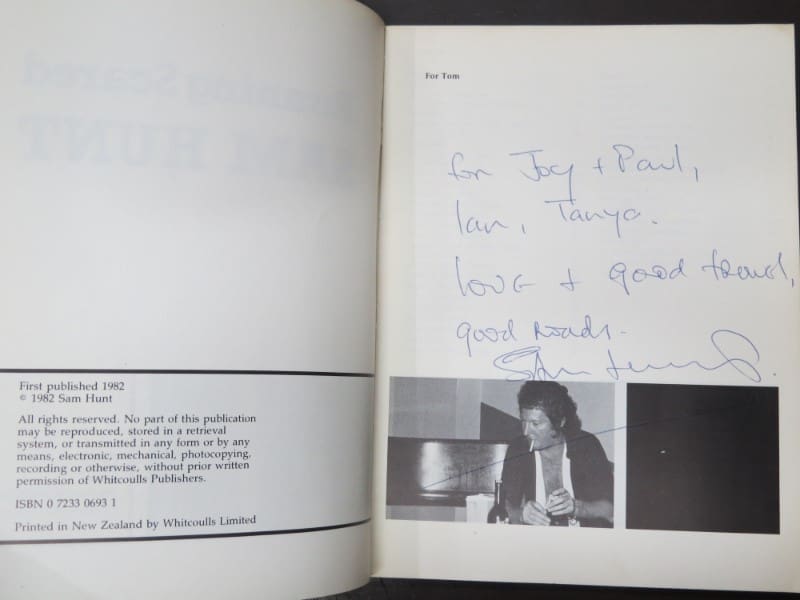 Running Scared
SAM HUNT
First published 1982
© 1982 Sam Hunt
All rights reserved. No part of this publication
may be reproduced, stored in a retrieval
system, or transmitted in any form or by any
means, electronic, mechanical, photocopying,
recording or otherwise, without prior written
permission of Whitcoulls Publishers.
ISBN 0 7233 0693 1
Printed in New Zealand by Whitcoulls Limited
For Tom
for Joy + Paul,
Ian, Tanya.
love + good travel,
good roads.
Sam Hunt.